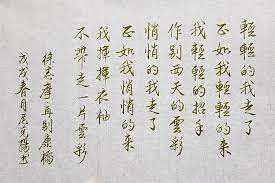 輕輕的我走了
正如我輕輕的来
我輕輕的招手
作别西天的雲彩
悄悄的我走了
正如我悄悄的来
我揮揮衣袖
不帶走一片雲彩
徐志摩再别康橋
戊戌春月